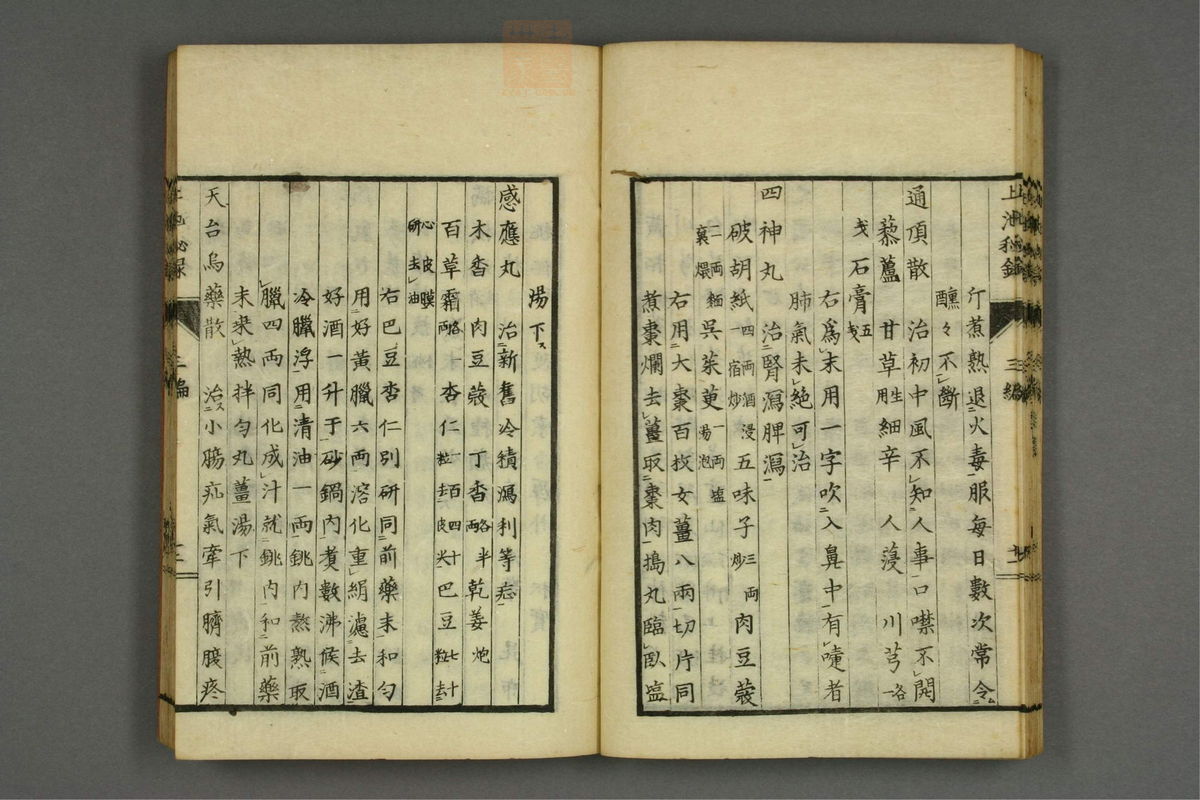 汁煮熟退火毒服每日數次常令
醺々不斷
通頂散　治初中風不知人事口噤不開
藜蘆　甘草甡細辛　人蓡　川芎各一
戔石膏五戔
右爲末用一字吹入鼻中有嚏者
肺氣未絕可治
四神丸　治腎瀉脾瀉
破胡紙四兩酒浸一宿炒五味子三兩炒肉豆蔻
二兩麵裏煨呉茱萸一兩塩湯泡
右用大棗百枚女薑八兩切片同
煮棗爛去薑取棗肉搗丸臨臥塩
湯下
感應丸　治新舊冷積瀉利等㤣
木香肉豆蔻丁香各一兩半乾姜炮
百草霜各一兩杏仁一百四十粒去皮尖巴豆七十粒去
心皮膜研去油
右巴豆杏仁別研同前藥末和勻
用好黃臘六兩溶化重絹濾去渣
好酒一升于砂鍋內煮數沸候酒
冷臘浮用清油一兩銚內熬熟取
臘四兩同化成汁就銚內和前藥
末乘熱拌勻丸薑湯下
天台烏藥散　治小腸疝氣牽引臍腹疼
上池秘錄
三編